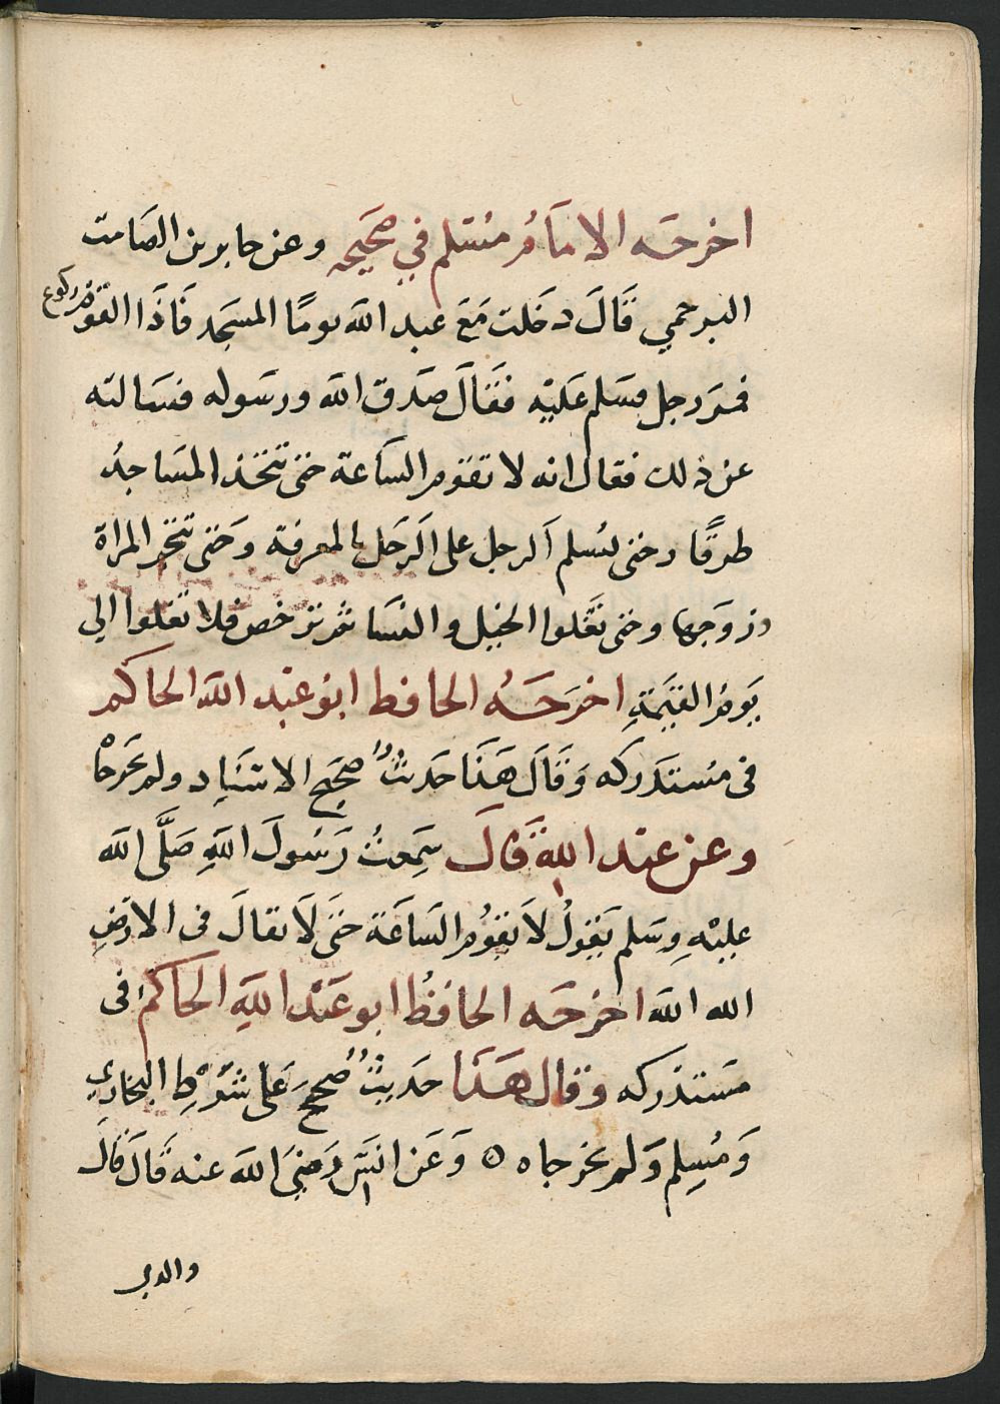 اخرجه الامام مسلم في صحيحه وعن جابر بن الصامت
البرجمي قال دخلت مع عبد الله يوما المسجد فاذا القوم ركوع
فمر رجل فسلم عليه فقال صدق الله ورسوله فسالته
عن ذلك فقال انه لا تقوم الساعة حتى تتخذ المساجد
طرقا وحتى يسلم الرجل على الرجل بالمعرفة وحتى تتجر المراة
وزوجها وحتى تغلوا الخيل والنسا ثم ترخص فلا تغلوا الي
يوم القيمة اخرجه الحافظ ابو عبد الله الحاكم
فى مستدركه وقال هذا حديث صحيح الاسناد ولم يخرجا
وعن عبد الله قال سمعت رسول الله صلى الله
عليه وسلم يقول لا يقوم الساعة حتى لا يقال فى الارض
الله الله اخرجه الحافظ ابو عبد الله الحاكم فى
مستدركه وقال هذا حديث صحيح على شرط البخاري
ومسلم ولم يخرجاه ٥ وعن انس رضى الله عنه قال قال
والدي